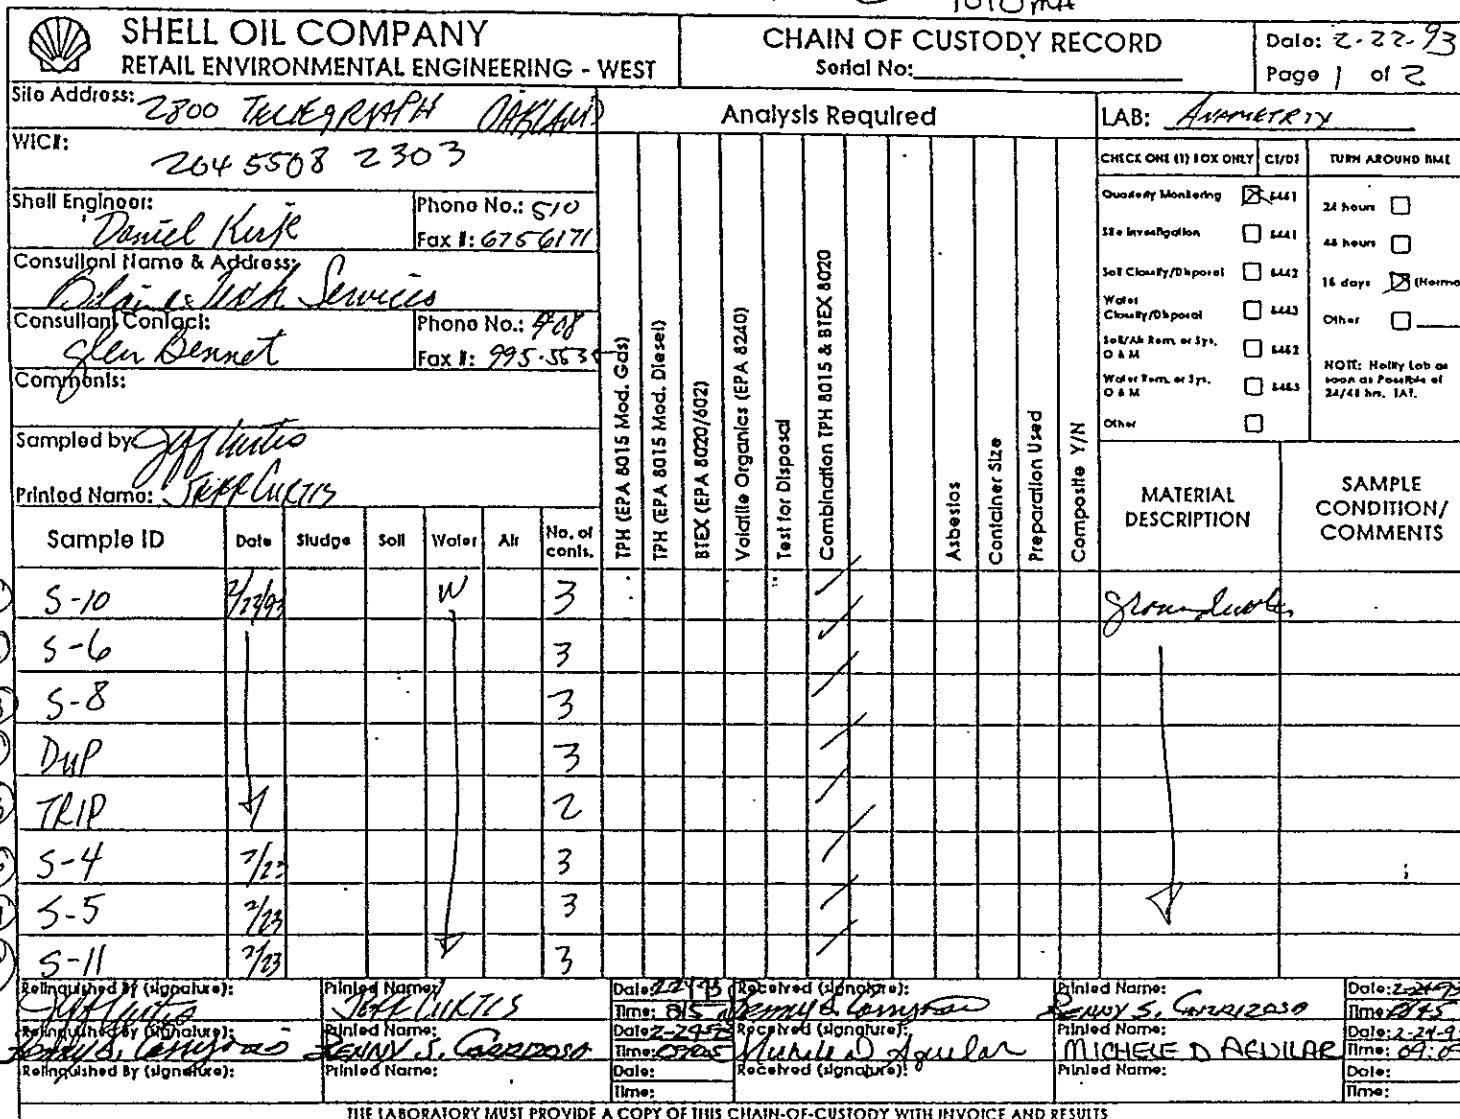 SHELL OIL COMPANY
RETAIL ENVIRONMENTAL ENGINEERING - WEST
CHAIN OF CUSTODY RECORD
Serial No:
Date: 2-22-93
Page 1 of 2
Site Address: 2800 TELEGRAPH OAKLAND
WIC#: 204 5508 2303
Shell Engineer: Daniel Kirk
Phone No.: 510
Fax #: 675 6171
Consultant Name & Address: Blaine Tech Services
Consultant Contact: Glen Bennet
Phone No.: 408
Fax #: 995-553
Comments:
Sampled by: Jeff Curtis
Printed Name: JEFF CURTIS
Analysis Required
LAB: ANAMETRIX
CHECK ONE (1) BOX ONLY CT/DT TURN AROUND TIME
Quarterly Monitoring ☒ 6461
Site Investigation ☐ 6441
Soil Classify/Disposal ☐ 6442
Water Classify/Disposal ☐ 6443
Soil/Air Rem. or Sys. O & M ☐ 6452
Water Rem. or Sys. O & M ☐ 6453
Other ☐
24 hours ☐
48 hours ☐
16 days ☒ (Norma
Other ☐
NOTE: Notify Lab as soon as Possible of 24/48 hrs. TAT.
TPH (EPA 8015 Mod. Gas)
TPH (EPA 8015 Mod. Diesel)
BTEX (EPA 8020/602)
Volatile Organics (EPA 8240)
Test for Disposal
Combination TPH 8015 & BTEX 8020
Asbestos
Container Size
Preparation Used
Composite Y/N
MATERIAL DESCRIPTION
SAMPLE CONDITION/ COMMENTS
Sample ID Date Sludge Soil Water Air No. of conts.
S-10 2/22/93 W 3 groundwater
S-6 3
S-8 3
DUP 3
TRIP 2
S-4 2/23 3
S-5 2/23 3
S-11 2/23 3
Relinquished By (signature): Jeff Curtis
Printed Name: JEFF CURTIS
Date: 2-24-93
Time: 815
Received (signature):
Printed Name: RENNY S. CARRIZOSO
Date: 2-24-93
Time:
Relinquished By (signature):
Printed Name: RENNY S. CARRIZOSO
Date: 2-24-93
Time: 0905
Received (signature): Michele D Aguilar
Printed Name: MICHELE D AGUILAR
Date: 2-24-9
Time: 09:05
Relinquished By (signature):
Printed Name:
Date:
Time:
Received (signature):
Printed Name:
Date:
Time:
THE LABORATORY MUST PROVIDE A COPY OF THIS CHAIN-OF-CUSTODY WITH INVOICE AND RESULTS